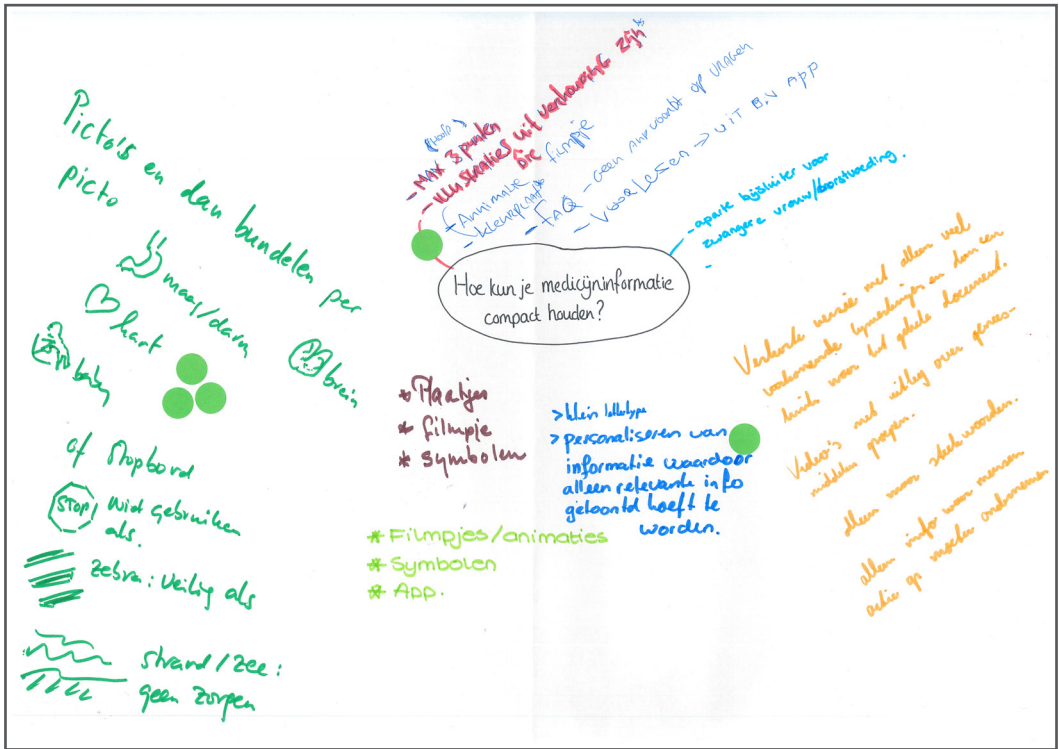 Picto's en dan bundelen per
picto
maag/darm
hart
brein
baby
of Stopbord
STOP niet gebruiken
als.
zebra: Veilig als
strand/zee:
geen zorgen
(Hoofd)
- MAX 3 punten
- illustraties uit verhouding zijn
die
- Annimatie filmpje
- kleurplaat
- FAQ - geen antwoordt op vragen
- Voorlesen -> uit B.V App
- aparte bijsluiter voor
zwangere vrouw/borstvoeding.
-
Hoe kun je medicijninformatie
compact houden?
* Plaatjes
* filmpje
* symbolen
> klein lettertype
> personaliseren van
informatie waardoor
alleen relevante info
getoond hoeft te
worden.
* Filmpjes/animaties
* Symbolen
* App.
Verkorte versie met alleen veel
voorkomende bijwerkingen en dan een
link naar het gehele document.
Video's met uitleg over genees-
middelen groepen.
alleen maar steekwoorden.
alleen info waar mensen
actie op moeten ondernemen